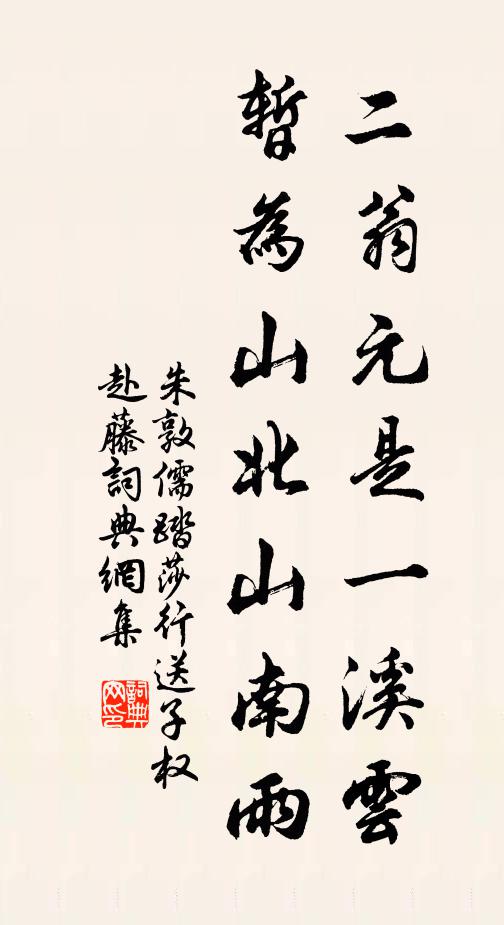 二翁元是一溪雲
暫為山北山南雨
朱敦儒踏莎行送子权
赴藤詞典網集
詞典网印